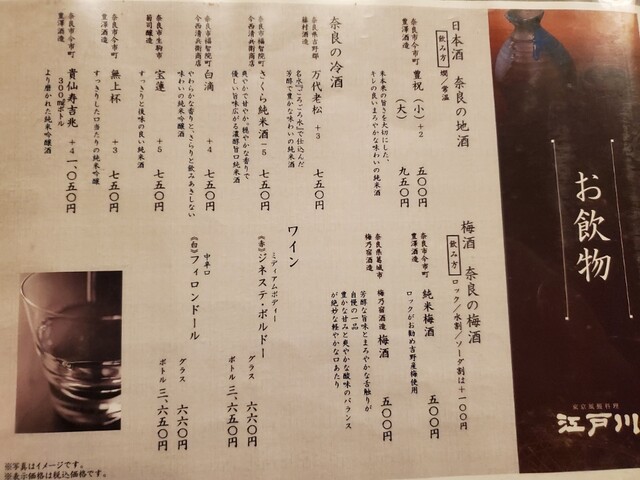 お飲物
東京風鰻料理
江戸川
日本酒 奈良の地酒
飲み方 燗/常温
奈良市今市町
豊澤酒造
豊祝 (小) +2 五〇〇円
(大) 九五〇円
米本来の旨さを大切にした、
キレの良いまろやかな味わいの純米酒
奈良の冷酒
奈良県吉野郡
藤村酒造
万代老松 +3 七五〇円
名水「ごろごろ水」で仕込んだ
芳醇で豊かな味わいの純米酒
奈良市福智院町
今西清兵衛商店
さくら純米酒 -5 七五〇円
爽やかで華やか。穏やかな香りで
優しい旨味広がる濃醇旨口純米酒
奈良市福智院町
今西清兵衛商店
白滴 +4 七五〇円
やわらかな香りと、さらりと飲みあきしない
味わいの純米吟醸酒
奈良県生駒市
菊司醸造
宝蓮 +5 七五〇円
すっきりと後味の良い純米酒
奈良市今市町
豊澤酒造
無上杯 +3 七五〇円
すっきりした口当たりの純米吟醸
奈良市今市町
豊澤酒造
貴仙寿吉兆 +4 一、〇五〇円
300㎖ボトル
より磨かれた純米吟醸酒
梅酒 奈良の梅酒
飲み方 ロック/水割/ソーダ割は+一〇〇円
奈良市今市町
豊澤酒造
純米梅酒 五〇〇円
ロックがお勧め吉野産梅使用
奈良県葛城市
梅乃宿酒造
梅乃宿酒造 梅酒 五〇〇円
芳醇な旨味とまろやかな舌触りが
自慢の一品
豊かな甘みと爽やかな酸味のバランス
が絶妙な軽やかな口あたり
ワイン
ミディアムボディー
《赤》ジネステ・ボルドー
グラス 六六〇円
ボトル 三、六五〇円
中辛口
《白》フィロンドール
グラス 六六〇円
ボトル 三、六五〇円
※写真はイメージです。
※表示価格は税込価格です。